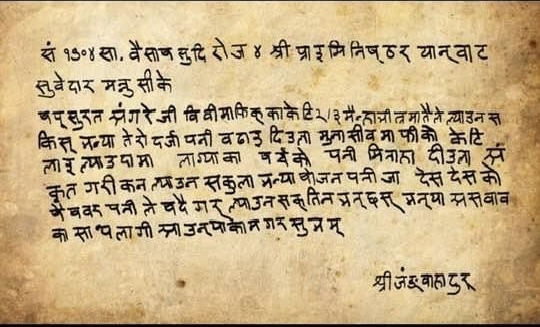 सं १९०४ सा. वैसाष सुदि रोज ४ श्री प्राइमिनिष्ठर यान् वाट
सुवेदार मन्नु सीके
षप्सुरत अंगरेजी विवीमाफिक् काकेटि २/३ मैन्हा भीत्रमातैंले ल्याउन स
किस् भन्या तेरो दर्जा पनी वढाइ दिउला मुनासीव माफीको केटि
लाइ ल्याउदामा लाग्याका षर्चको पनी मिनाहा दीउला
कृत गरीकन ल्याउन सकुला भन्या षोजन पनी जा देस देस को
षवर पनी ते वदै गर् ल्याउन सक्तिन भन्छस् भन्या असवाव
का साथ लागी आउन्याकाम गर सुभम्
श्री जंङ्वाहादुर्